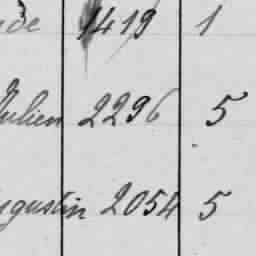 1419 1
Julien 2296 5
ugustin 2054 5